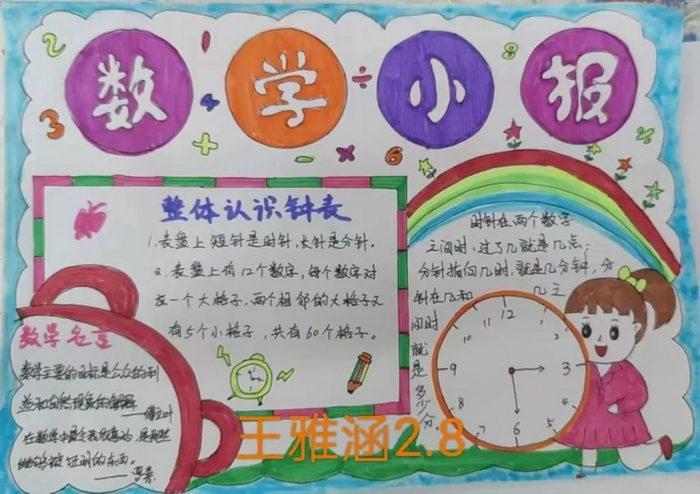 数学小报
整体认识钟表
1.表盘上短针是时针,长针是分针。
2.表盘上有12个数字,每个数字对
应一个大格子,两个相邻的大格子又
有5个小格子,共有60个格子。
时针在两个数字
之间时,过了几就是几点;
分针指向几时,就是几分钟,分
针在几和 几之
间时
就
是
多
少
分
数学名言
数学主要的目标是公众的利
益和自然现象的解释
傅立叶
在数学中最令我欣喜的,是那些
能够被证明的东西。
——罗素
12
1
2
3
4
5
6
7
8
9
10
11
王雅涵2.8